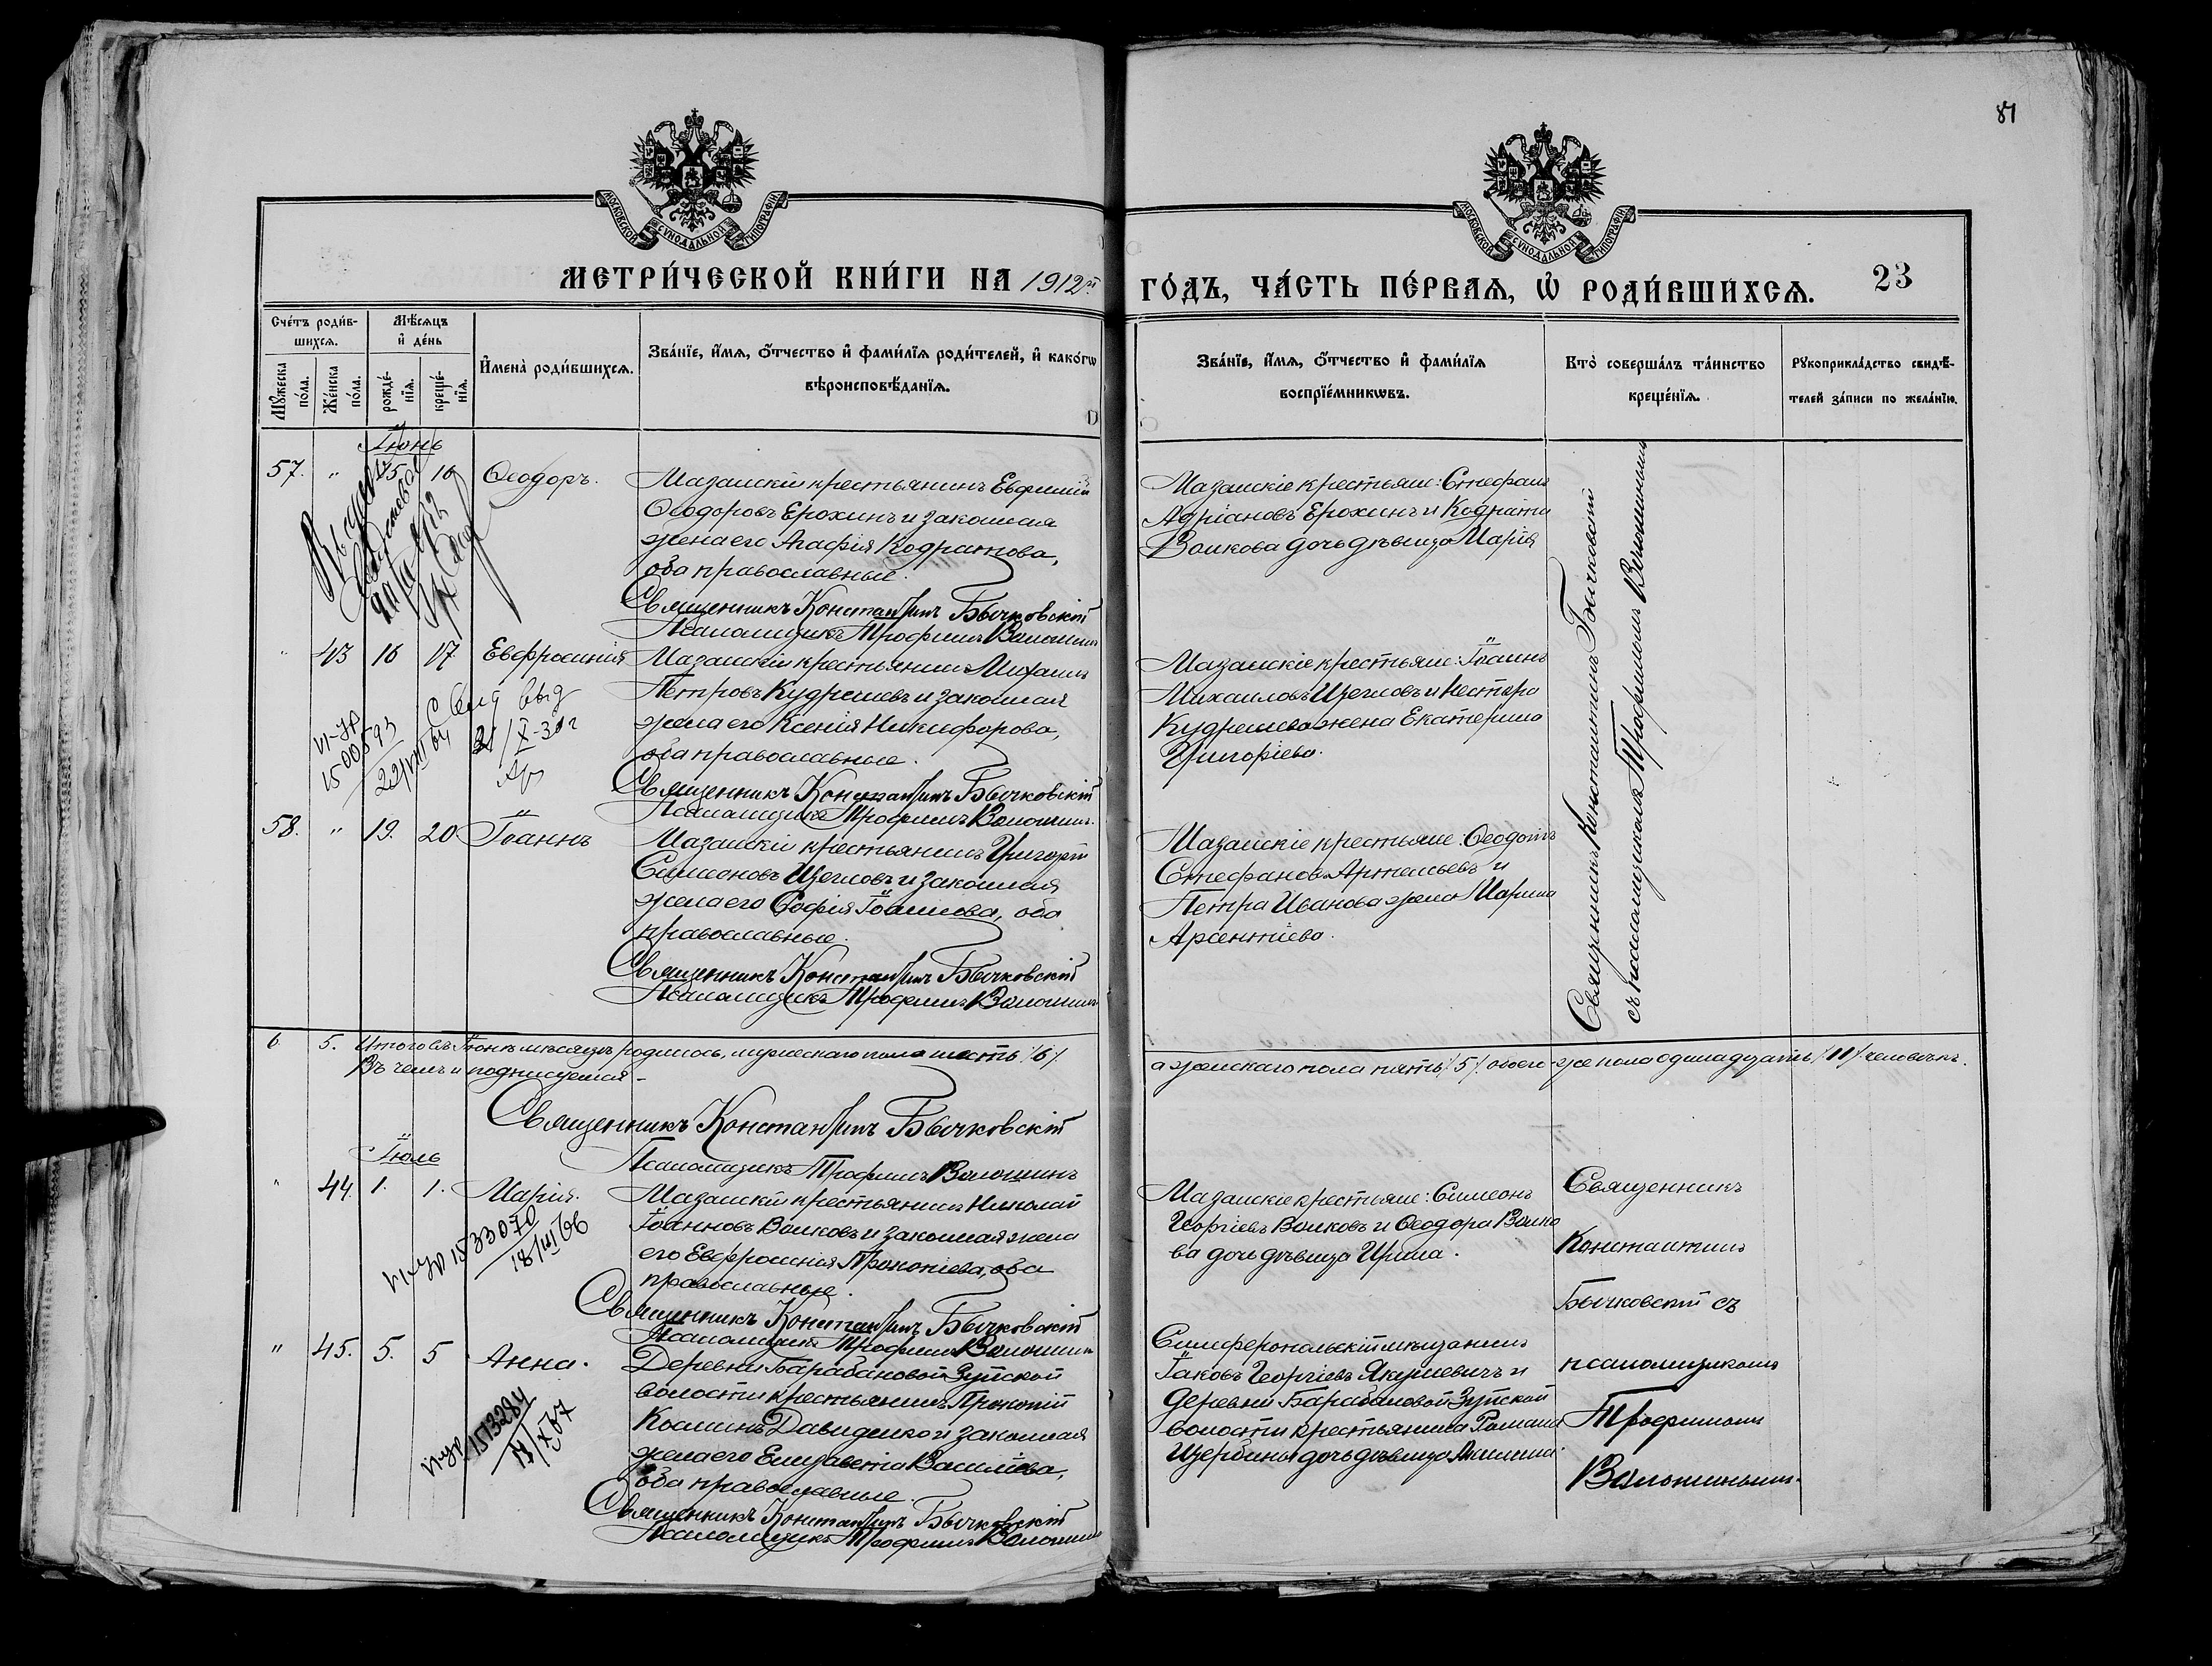 81
МОСКОВСКОЙ СѴНОДАЛЬНОЙ ТИПОГРАФІИ
МОСКОВСКОЙ СѴНОДАЛЬНОЙ ТИПОГРАФІИ
МЕТРИ́ЧЕСКОЙ КНИ́ГИ НА 1912й
ГО́ДЪ, ЧА́СТЬ ПЕ́РВАѦ, Ѡ҆ РОДИ́ВШИХСѦ. 23
Сче́тъ роди́в-
шихсѧ.
Мꙋ́жеска по́ла.
Же́нска по́ла.
Мѣ́сѧцъ
и҆ де́нь
рожде́-
нїѧ.
креще́-
нїѧ.
И҆мена̀ роди́вшихсѧ.
Зва́нїе, и҆́мѧ, ѻ҆́тчество и҆ фами́лїѧ роди́телей, и҆ како́гѡ
вѣроисповѣ́данїѧ.
Зва́нїе, и҆́мѧ, ѻ҆́тчество и҆ фами́лїѧ
воспрїе́мникѡвъ.
Кто̀ соверша́лъ та́инство
креще́нїѧ.
Рꙋкоприкла́дство свидѣ́-
телей за́писи по жела́нїю.
Іюнь
57. " 15 16 Ѳеодоръ.
Мазанскій крестьянинъ Евфимій
Ѳеодоровъ Ерохинъ и законная
жена его Агафія Кодратова,
оба православные.
Священникъ Константинъ Бычковскій
Псаломщикъ Трофимъ Волошинъ
Мазанскіе крестьяне: Стефанъ
Адріановъ Ерохинъ и Кодрата
Волкова дочь дѣвица Марія
Священникъ Константинъ Бычковскій
съ псаломщикомъ Трофимомъ Волошинымъ
" 43 16 17 Евфросинія
Мазанскій крестьянинъ Михаилъ
Петровъ Кудряшевъ и законная
жена его Ксенія Никифорова,
оба православные.
Священникъ Константинъ Бычковскій
Псаломщикъ Трофимъ Волошинъ.
22/VIII 64
Мазанскіе крестьяне: Іоаннъ
Михаиловъ Щегловъ и Нестора
Кудряшева жена Екатерина
Григоріева.
58. " 19. 20 Іоаннъ
Мазанскій крестьянинъ Григорій
Симеоновъ Щегловъ и законная
жена его Софія Іоаннова, оба
православные.
Священникъ Константинъ Бычковскій
Псаломщикъ Трофимъ Волошинъ
Мазанскіе крестьяне: Ѳеодотъ
Стефановъ Артемьевъ и
Петра Иванова жена Марина
Арсентіева.
6 5. Итого въ Іюнѣ мѣсяцѣ родилось, мужескаго пола шесть /6/
а женскаго пола пять /5/. обоего-же пола одинадцать /11/ человѣкъ.
Въ чемъ и подписуемся –
Священникъ Константинъ Бычковскій
Псаломщикъ Трофимъ Волошинъ
Іюль
" 44. 1. 1. Марія.
Мазанскій крестьянинъ Николай
Іоанновъ Волковъ и законная жена
его Евфросинія Прокопіева, оба
православные.
Священникъ Константинъ Бычковскій
Псаломщикъ Трофимъ Волошинъ
1533070
18/III 66
Мазанскіе крестьяне: Симеонъ
Георгіевъ Волковъ и Ѳеодора Волко
ва дочь дѣвица Ирина.
Священникъ
Константинъ
Бычковскій съ
псаломщикомъ
Трофимомъ
Волошинымъ.
" 45. 5. 5 Анна.
Деревни Барабановой Зуйской
волости крестьянинъ Прокопій
Косминъ Давиденко и законная
жена его Елизавета Василіева,
оба православные.
Священникъ Константинъ Бычковскій
Псаломщикъ Трофимъ Волошинъ
1513284
Симферопольскій мѣщанинъ
Іаковъ Георгіевъ Якушевичъ и
деревни Барабановой Зуйской
волости крестьянина Романа
Щербины дочь дѣвица